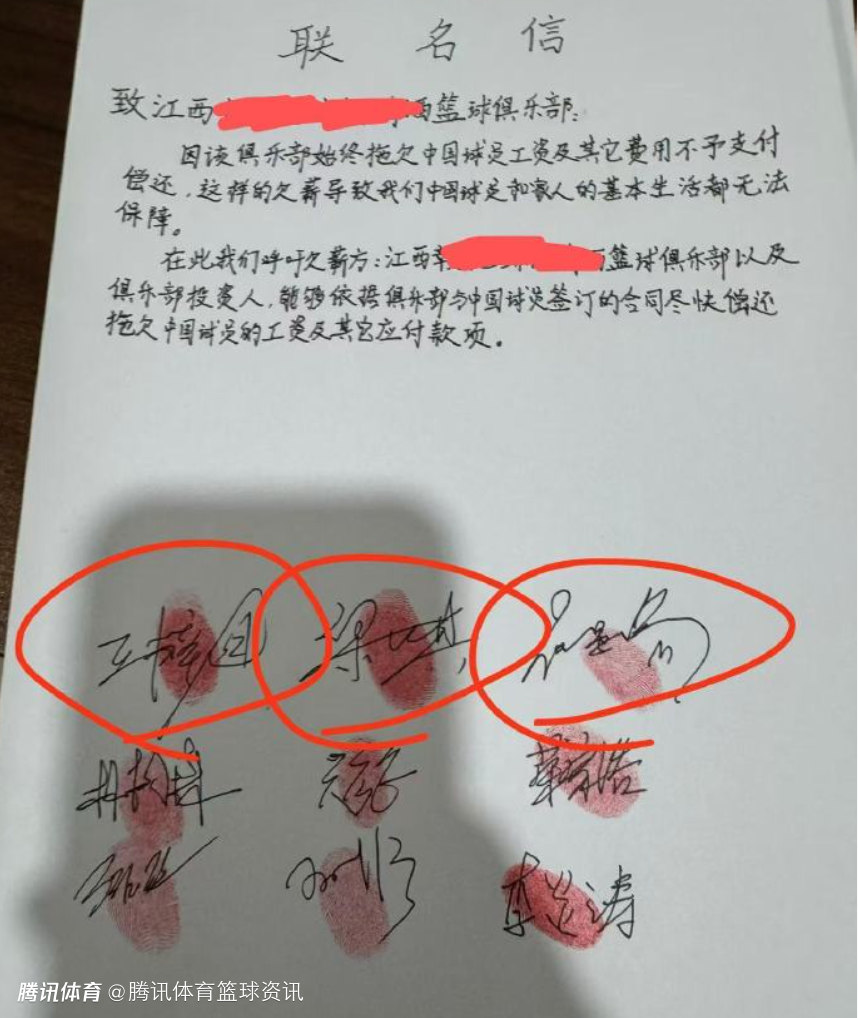 联名信
致江西 西篮球俱乐部:
因该俱乐部始终拖欠中国球员工资及其它费用不予支付
偿还,这样的欠薪导致我们中国球员和家人的基本生活都无法
保障。
在此我们呼吁欠薪方:江西 篮球俱乐部以及
俱乐部投资人,能够依据俱乐部与中国球员签订的合同尽快偿还
拖欠中国球员的工资及其它应付款项。
腾讯体育 @腾讯体育篮球资讯